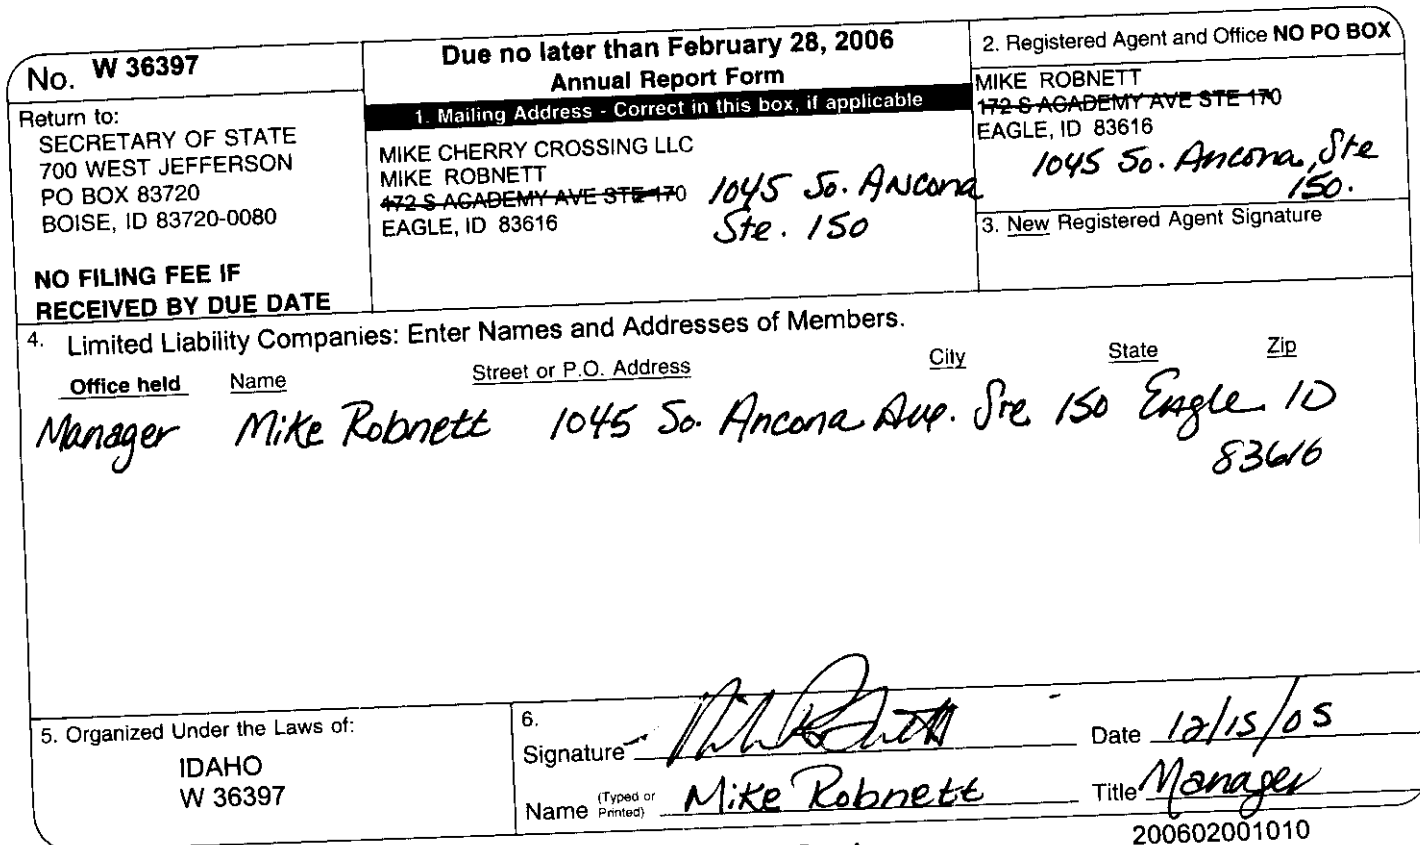 No. W 36397
Return to:
SECRETARY OF STATE
700 WEST JEFFERSON
PO BOX 83720
BOISE, ID 83720-0080
NO FILING FEE IF
RECEIVED BY DUE DATE
Due no later than February 28, 2006
Annual Report Form
1. Mailing Address - Correct in this box, if applicable
MIKE CHERRY CROSSING LLC
MIKE ROBNETT
172 S ACADEMY AVE STE 170
EAGLE, ID 83616
1045 So. Ancona
Ste. 150
2. Registered Agent and Office NO PO BOX
MIKE ROBNETT
172 S ACADEMY AVE STE 170
EAGLE, ID 83616
1045 So. Ancona, Ste
150.
3. New Registered Agent Signature
4. Limited Liability Companies: Enter Names and Addresses of Members.
Office held Name Street or P.O. Address City State Zip
Manager Mike Robnett 1045 So. Ancona Ave. Ste 150 Eagle ID
83616
5. Organized Under the Laws of:
IDAHO
W 36397
6.
Signature Mike Robnett Date 12/15/05
Name (Typed or Printed) Mike Robnett Title Manager
200602001010